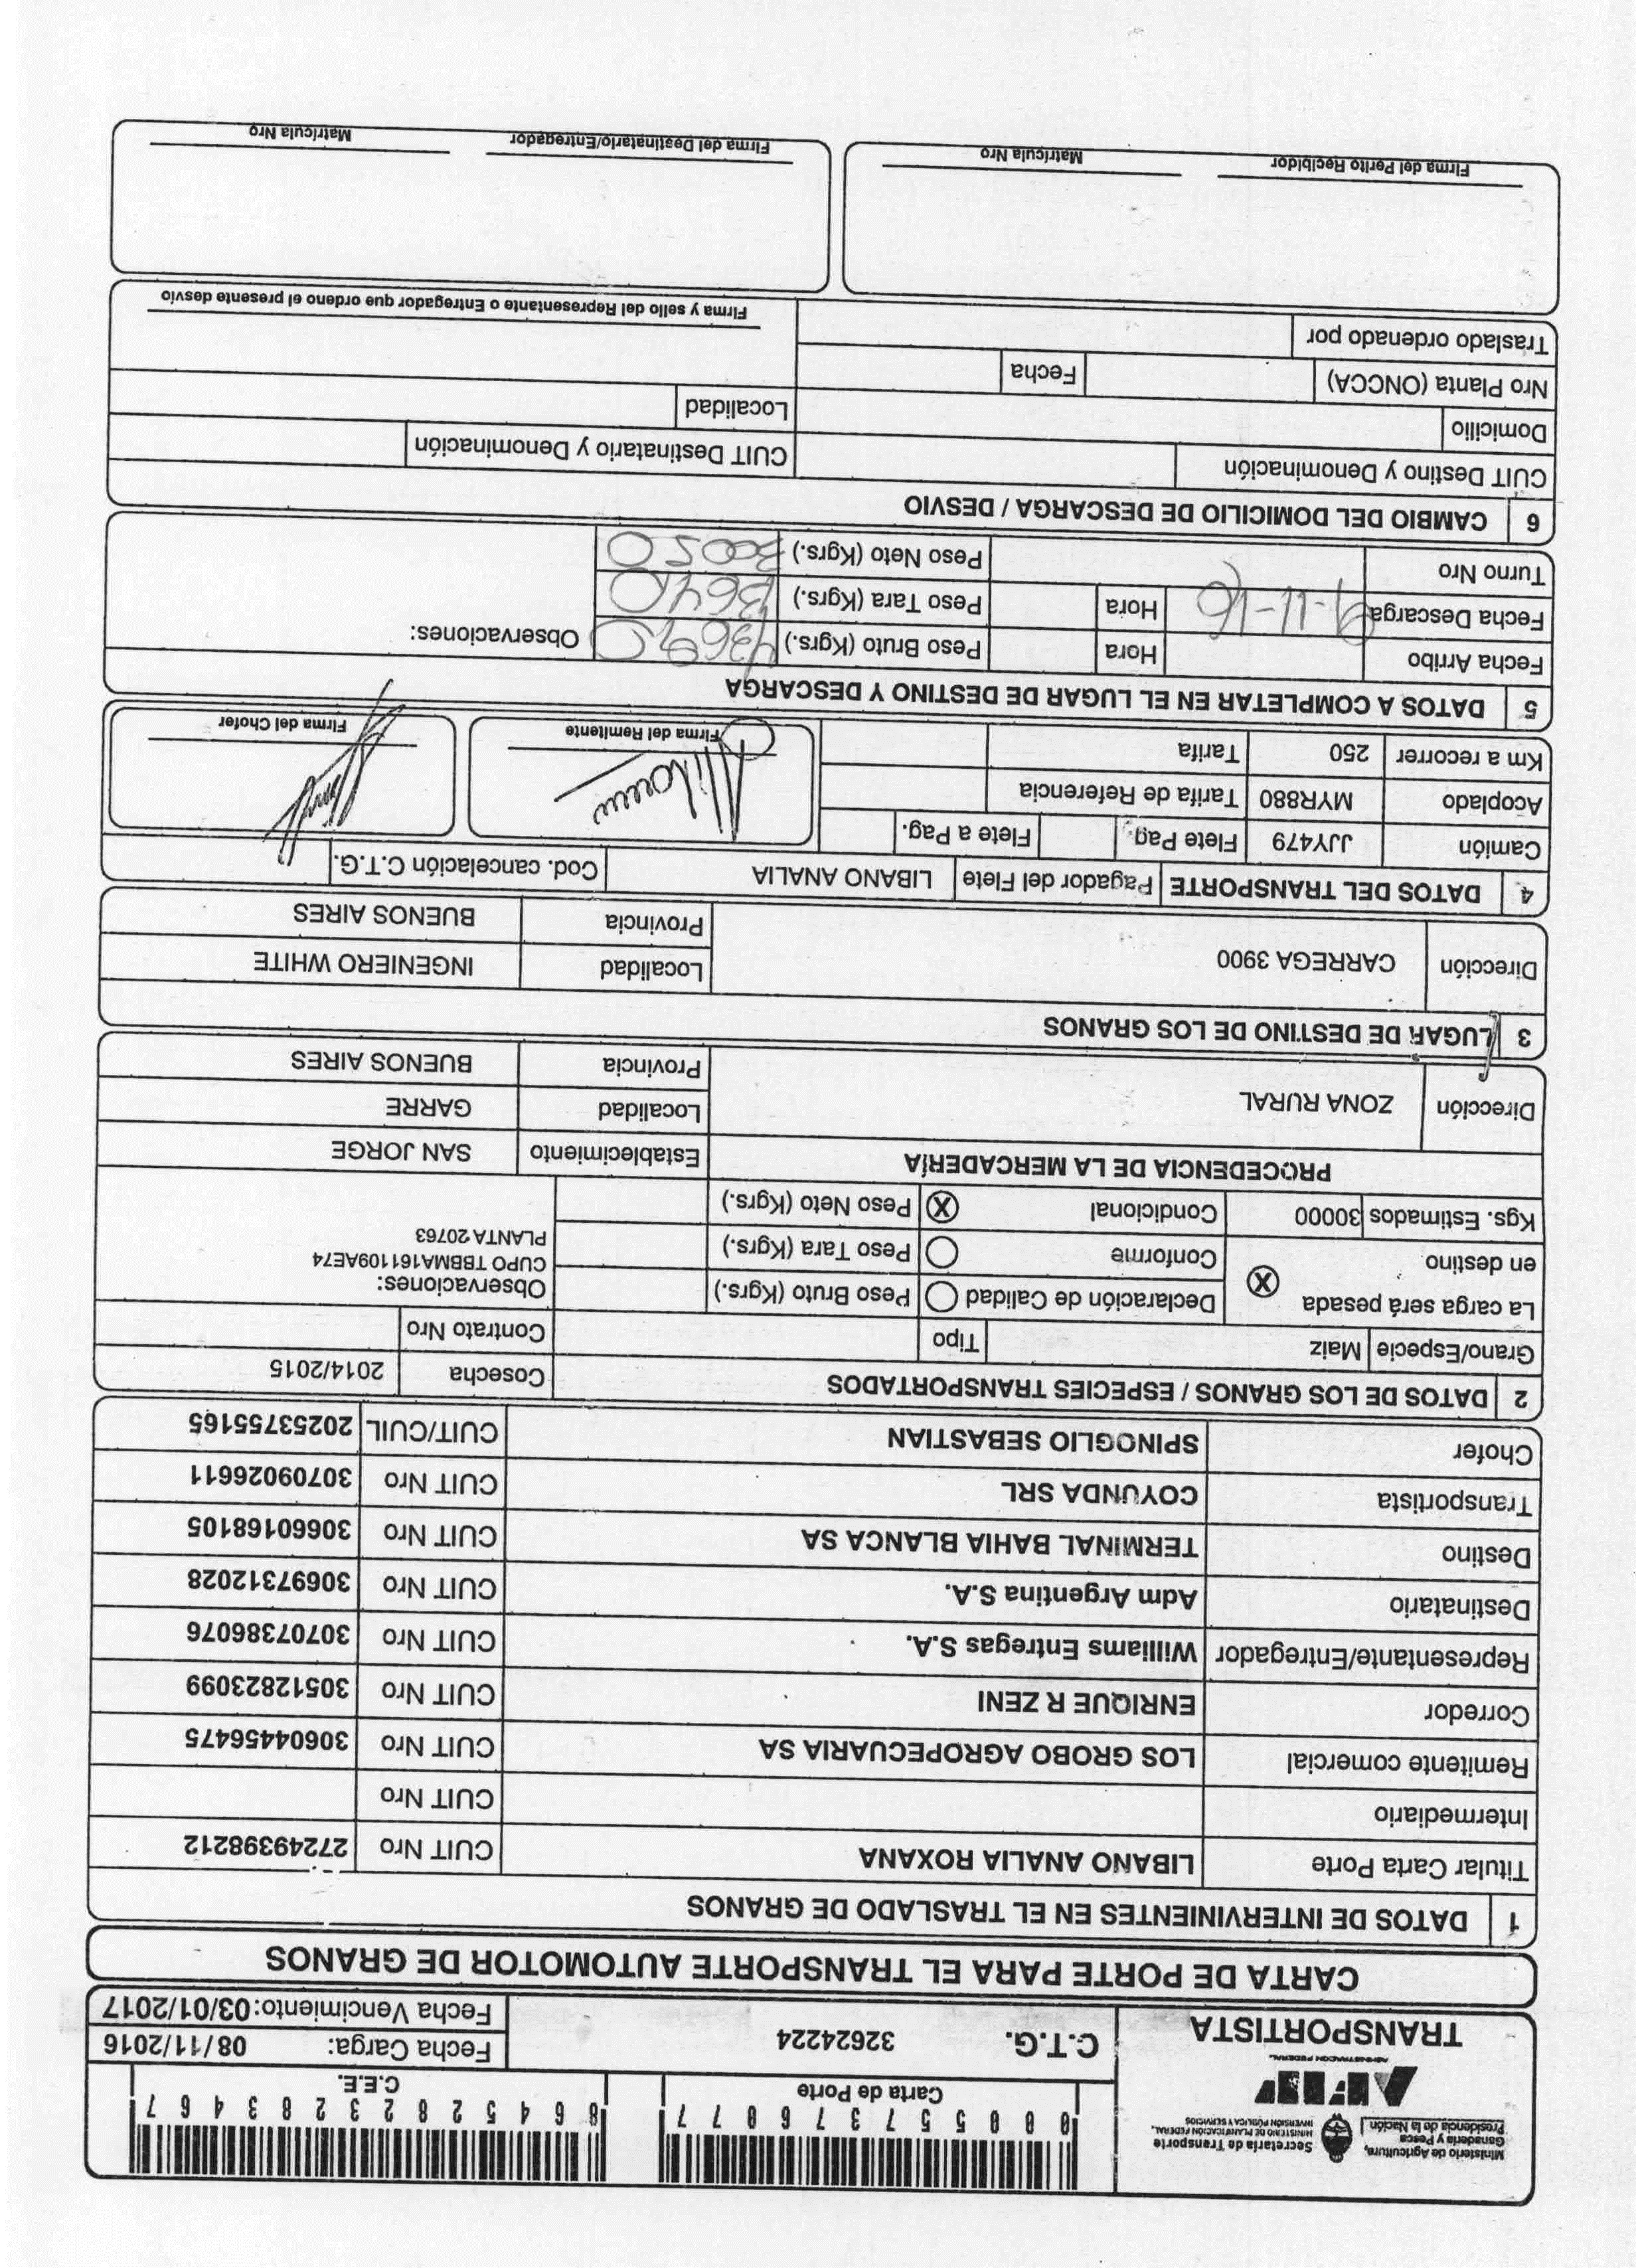 Ministerio de Agricultura,
Ganadería y Pesca
Presidencia de la Nación
Secretaría de Transporte
MINISTERIO DE PLANIFICACIÓN FEDERAL,
INVERSIÓN PÚBLICA Y SERVICIOS
AFIP
ADMINISTRACION FEDERAL
TRANSPORTISTA
0 0 0 5 5 7 3 7 6 0 7 7
Carta de Porte
8 6 4 5 2 8 2 3 2 8 3 4 6 7
C.E.E.
C.T.G. 32624224
Fecha Carga: 08/11/2016
Fecha Vencimiento: 03/01/2017
CARTA DE PORTE PARA EL TRANSPORTE AUTOMOTOR DE GRANOS
1 DATOS DE INTERVINIENTES EN EL TRASLADO DE GRANOS
Titular Carta Porte LIBANO ANALIA ROXANA CUIT Nro 27249398212
Intermediario CUIT Nro
Remitente comercial LOS GROBO AGROPECUARIA SA CUIT Nro 30604456475
Corredor ENRIQUE R ZENI CUIT Nro 30512823099
Representante/Entregador Williams Entregas S.A. CUIT Nro 30707386076
Destinatario Adm Argentina S.A. CUIT Nro 30697312028
Destino TERMINAL BAHIA BLANCA SA CUIT Nro 30660168105
Transportista COYUNDA SRL CUIT Nro 30709026611
Chofer SPINOGLIO SEBASTIAN CUIT/CUIL 20253755165
2 DATOS DE LOS GRANOS / ESPECIES TRANSPORTADOS Cosecha 2014/2015
Grano/Especie Maiz Tipo Contrato Nro
La carga será pesada
en destino X
Declaración de Calidad Peso Bruto (Kgrs.)
Conforme Peso Tara (Kgrs.)
Kgs. Estimados 30000 Condicional X Peso Neto (Kgrs.)
Observaciones:
CUPO TBBMA161109AE74
PLANTA 20763
PROCEDENCIA DE LA MERCADERÍA Establecimiento SAN JORGE
Dirección ZONA RURAL Localidad GARRE
Provincia BUENOS AIRES
3 LUGAR DE DESTINO DE LOS GRANOS
Dirección CARREGA 3900 Localidad INGENIERO WHITE
Provincia BUENOS AIRES
4 DATOS DEL TRANSPORTE Pagador del Flete LIBANO ANALIA Cod. cancelación C.T.G.
Camión JJY479 Flete Pag. Flete a Pag.
Acoplado MYR880 Tarifa de Referencia
Km a recorrer 250 Tarifa
Firma del Remitente
Firma del Chofer
5 DATOS A COMPLETAR EN EL LUGAR DE DESTINO Y DESCARGA
Fecha Arribo Hora Peso Bruto (Kgrs.) 43690 Observaciones:
Fecha Descarga 9-11-16 Hora Peso Tara (Kgrs.) 13640
Turno Nro Peso Neto (Kgrs.) 30050
6 CAMBIO DEL DOMICILIO DE DESCARGA / DESVIO
CUIT Destino y Denominación CUIT Destinatario y Denominación
Domicilio Localidad
Nro Planta (ONCCA) Fecha
Traslado ordenado por
Firma y sello del Representante o Entregador que ordeno el presente desvío
Firma del Perito Recibidor Matrícula Nro
Firma del Destinatario/Entregador Matrícula Nro